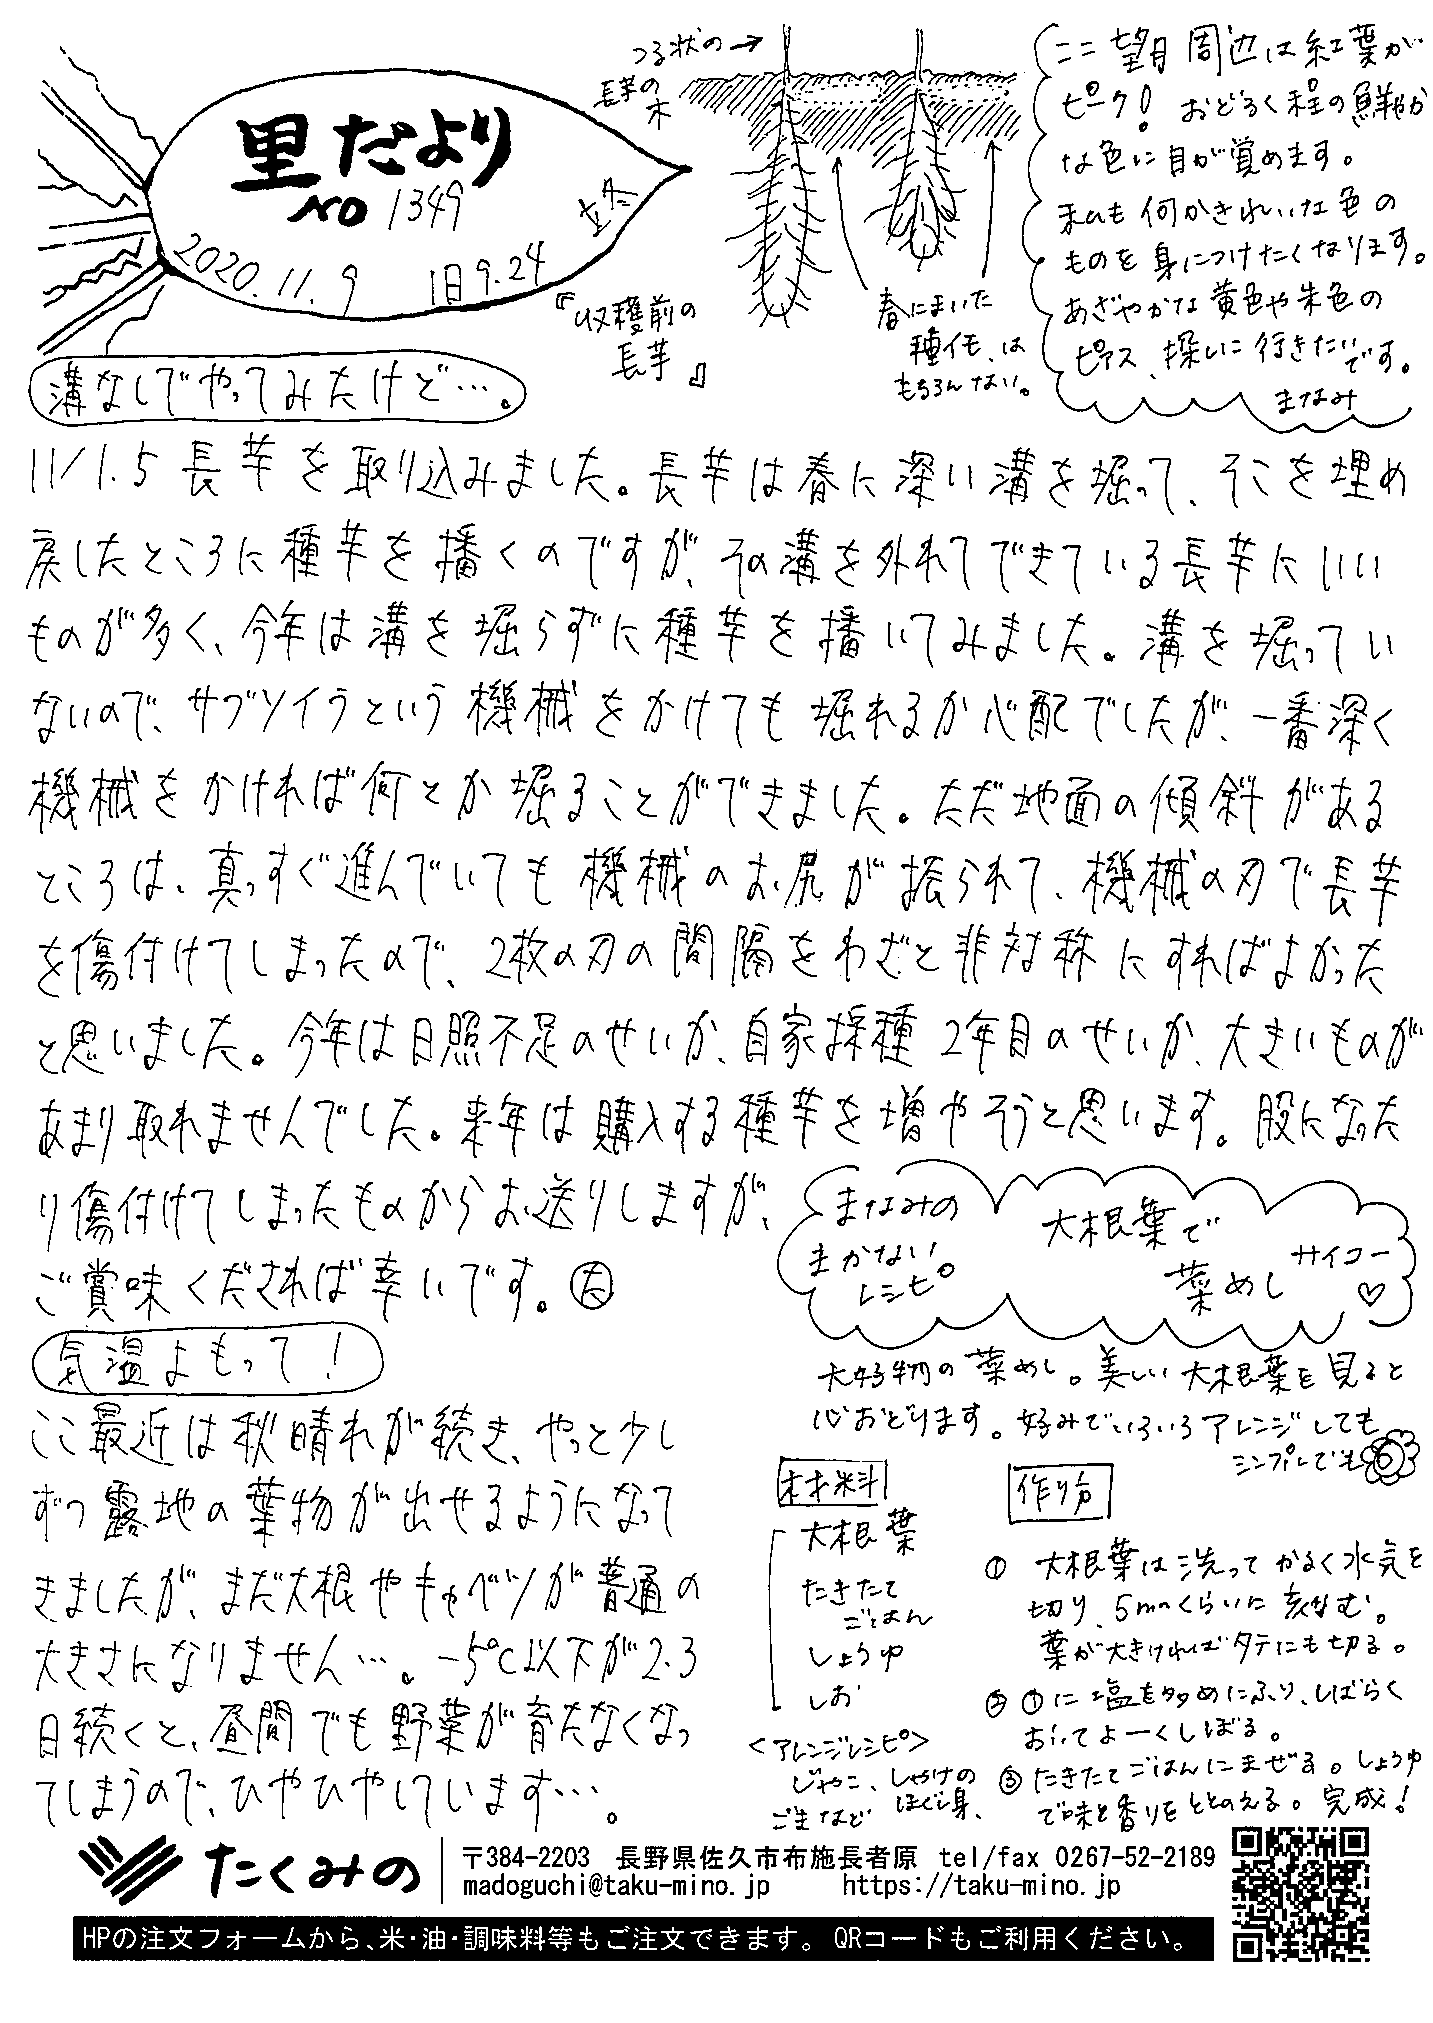 里だより
NO 1349
2020.11.9 旧9.24
つる状の→
長芋の
木
『収穫前の
長芋
』
春にまいた
種イモはもちろんない。
ここ望月周辺は紅葉が
ピーク！おどろく程の鮮やか
な色に目が覚めます。
私も何かきれいな色の
ものを身につけたくなります。
あざやかな黄色や朱色の
ピアス、探しに行きたいです。
まなみ
溝なしでやってみたけど…。
11/1.5 長芋を取り込みました。長芋は春に深い溝を掘って、そこを埋め
戻したところに種芋を播くのですが、その溝を外れてできている長芋にいい
ものが多く、今年は溝を掘らずに種芋を播いてみました。溝を掘ってい
ないので、サブソイラという機械をかけても掘れるか心配でしたが、一番深く
機械をかければ何とか掘ることができました。ただ地面の傾斜がある
ところは、真っすぐ進んでいても機械のお尻が振られて、機械の刃で長芋
を傷付けてしまったので、2枚の刃の間隔をわざと非対称にすればよかった
と思いました。今年は日照不足のせいか、自家採種2年目のせいか、大きいものが
あまり取れませんでした。来年は購入する種芋を増やそうと思います。股になった
り傷付けてしまったものからお送りしますが、
ご賞味くだされば幸いです。た
気温よもって！
ここ最近は秋晴れが続き、やっと少し
ずつ露地の葉物が出せるようになって
きましたが、まだ大根やキャベツが普通の
大きさになりません…。-5℃以下が2.3
日続くと、昼間でも野菜が育たなくなっ
てしまうので、ひやひやしています…。
まなみの
まかない
レシピ
大根葉で
菜めし
サイコー
♡
大好物の菜めし。美しい大根葉を見ると
心おどります。好みでいろいろアレンジしても
シンプルでも◎
材料
大根葉
たきたて
ごはん
しょうゆ
しお
＜アレンジレシピ＞
じゃこ、しゃけの
ほぐし身、
ごまなど
作り方
① 大根葉は洗ってかるく水気を
切り、5mmくらいに刻む。
葉が大きければタテにも切る。
② ①に塩を多めにふり、しばらく
おいてよーくしぼる。
③ たきたてごはんにまぜる。しょうゆ
で味と香りをととのえる。完成！
たくみの
〒384-2203 長野県佐久市布施長者原 tel/fax 0267-52-2189
madoguchi@taku-mino.jp https://taku-mino.jp
HPの注文フォームから、米・油・調味料等もご注文できます。 QRコードもご利用ください。